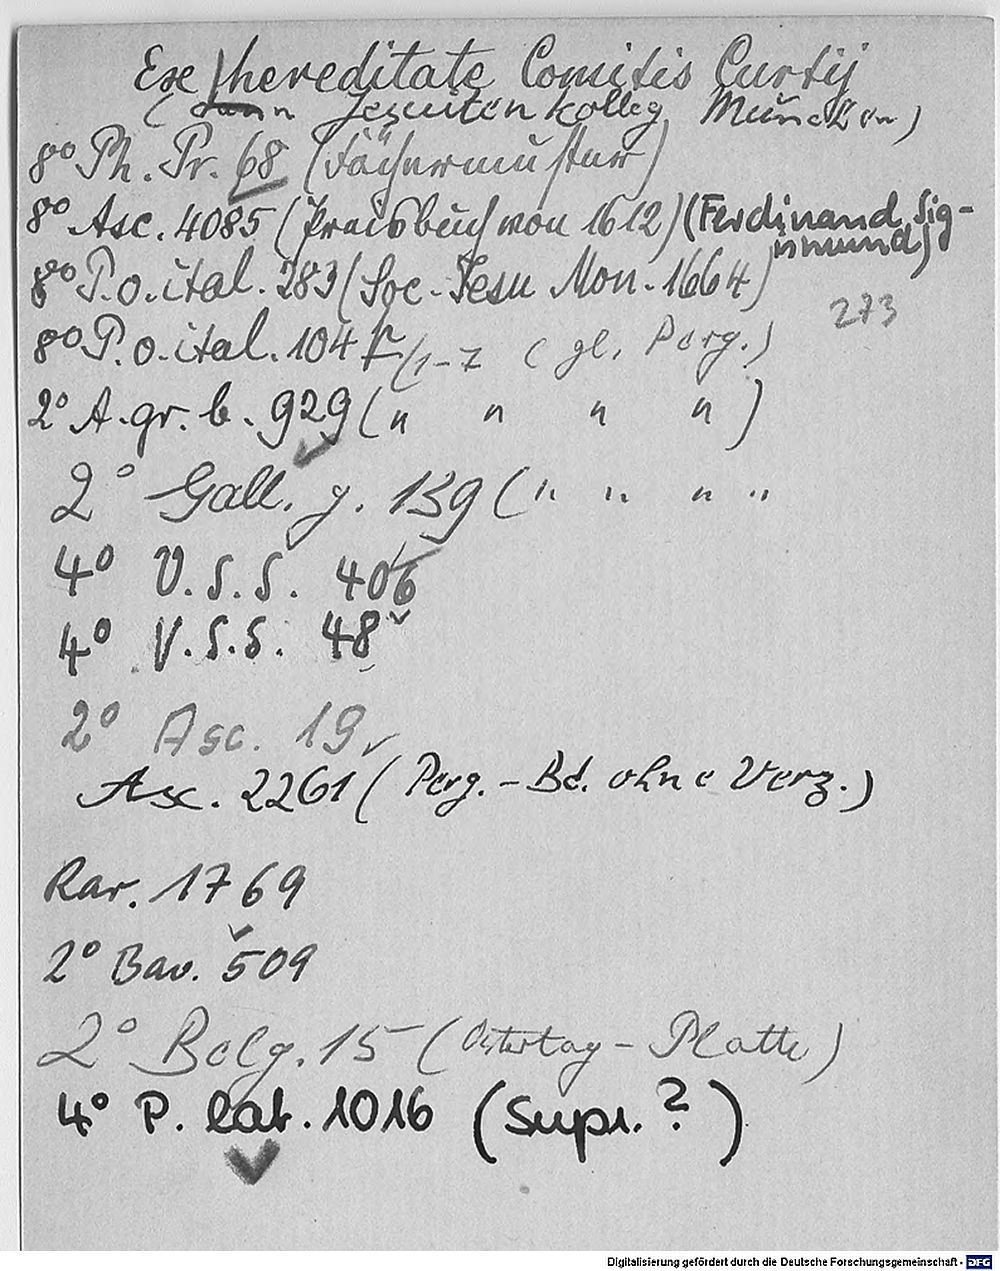 Exe hereditate Comitis Curtij
(dann Jesuitenkolleg München)
8° Ph. Pr. 68 (Fächermuster)
8° Asc. 4085 (Preisbuch von 1612) (Ferdinand Sig-
nmund)
8° P.o.ital. 283 (Soc. Jesu Mon. 1664)
273
8° P.o.ital. 104 f/1-7 (gl. Perg.)
2° A.gr.b. 929 (" " " ")
2° Gall. g. 139 (" " " "
4° V.S.S. 406
4° V.S.S. 48
2° Asc. 19
Asc. 2261 (Perg.-Bd. ohne Verz.)
Rar. 1769
2° Bav. 509
2° Belg. 15 (Ostertag-Platte)
4° P. lat. 1016 (Supr.?)
Digitalisierung gefördert durch die Deutsche Forschungsgemeinschaft - DFG